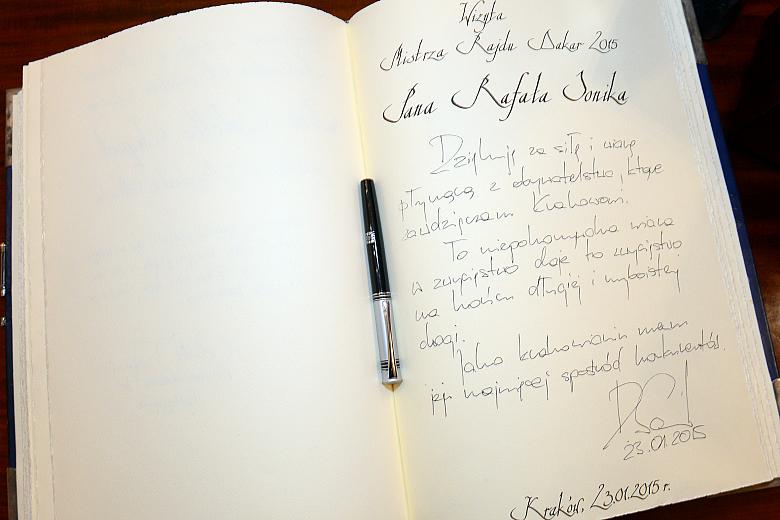 Wizyta
Mistrza Rajdu Dakar 2015
Pana Rafała Sonika
Dziękuję za siłę i wiarę
płynącą z obywatelstwa, które
zawdzięczam Krakowowi.
To niepohamowana wiara
w zwycięstwo daje to zwycięstwo
na końcu długiej i wyboistej
drogi.
Jako krakowianin mam
jej najwięcej spośród konkurentów.
23.01.2015
Kraków, 23.01.2015 r.